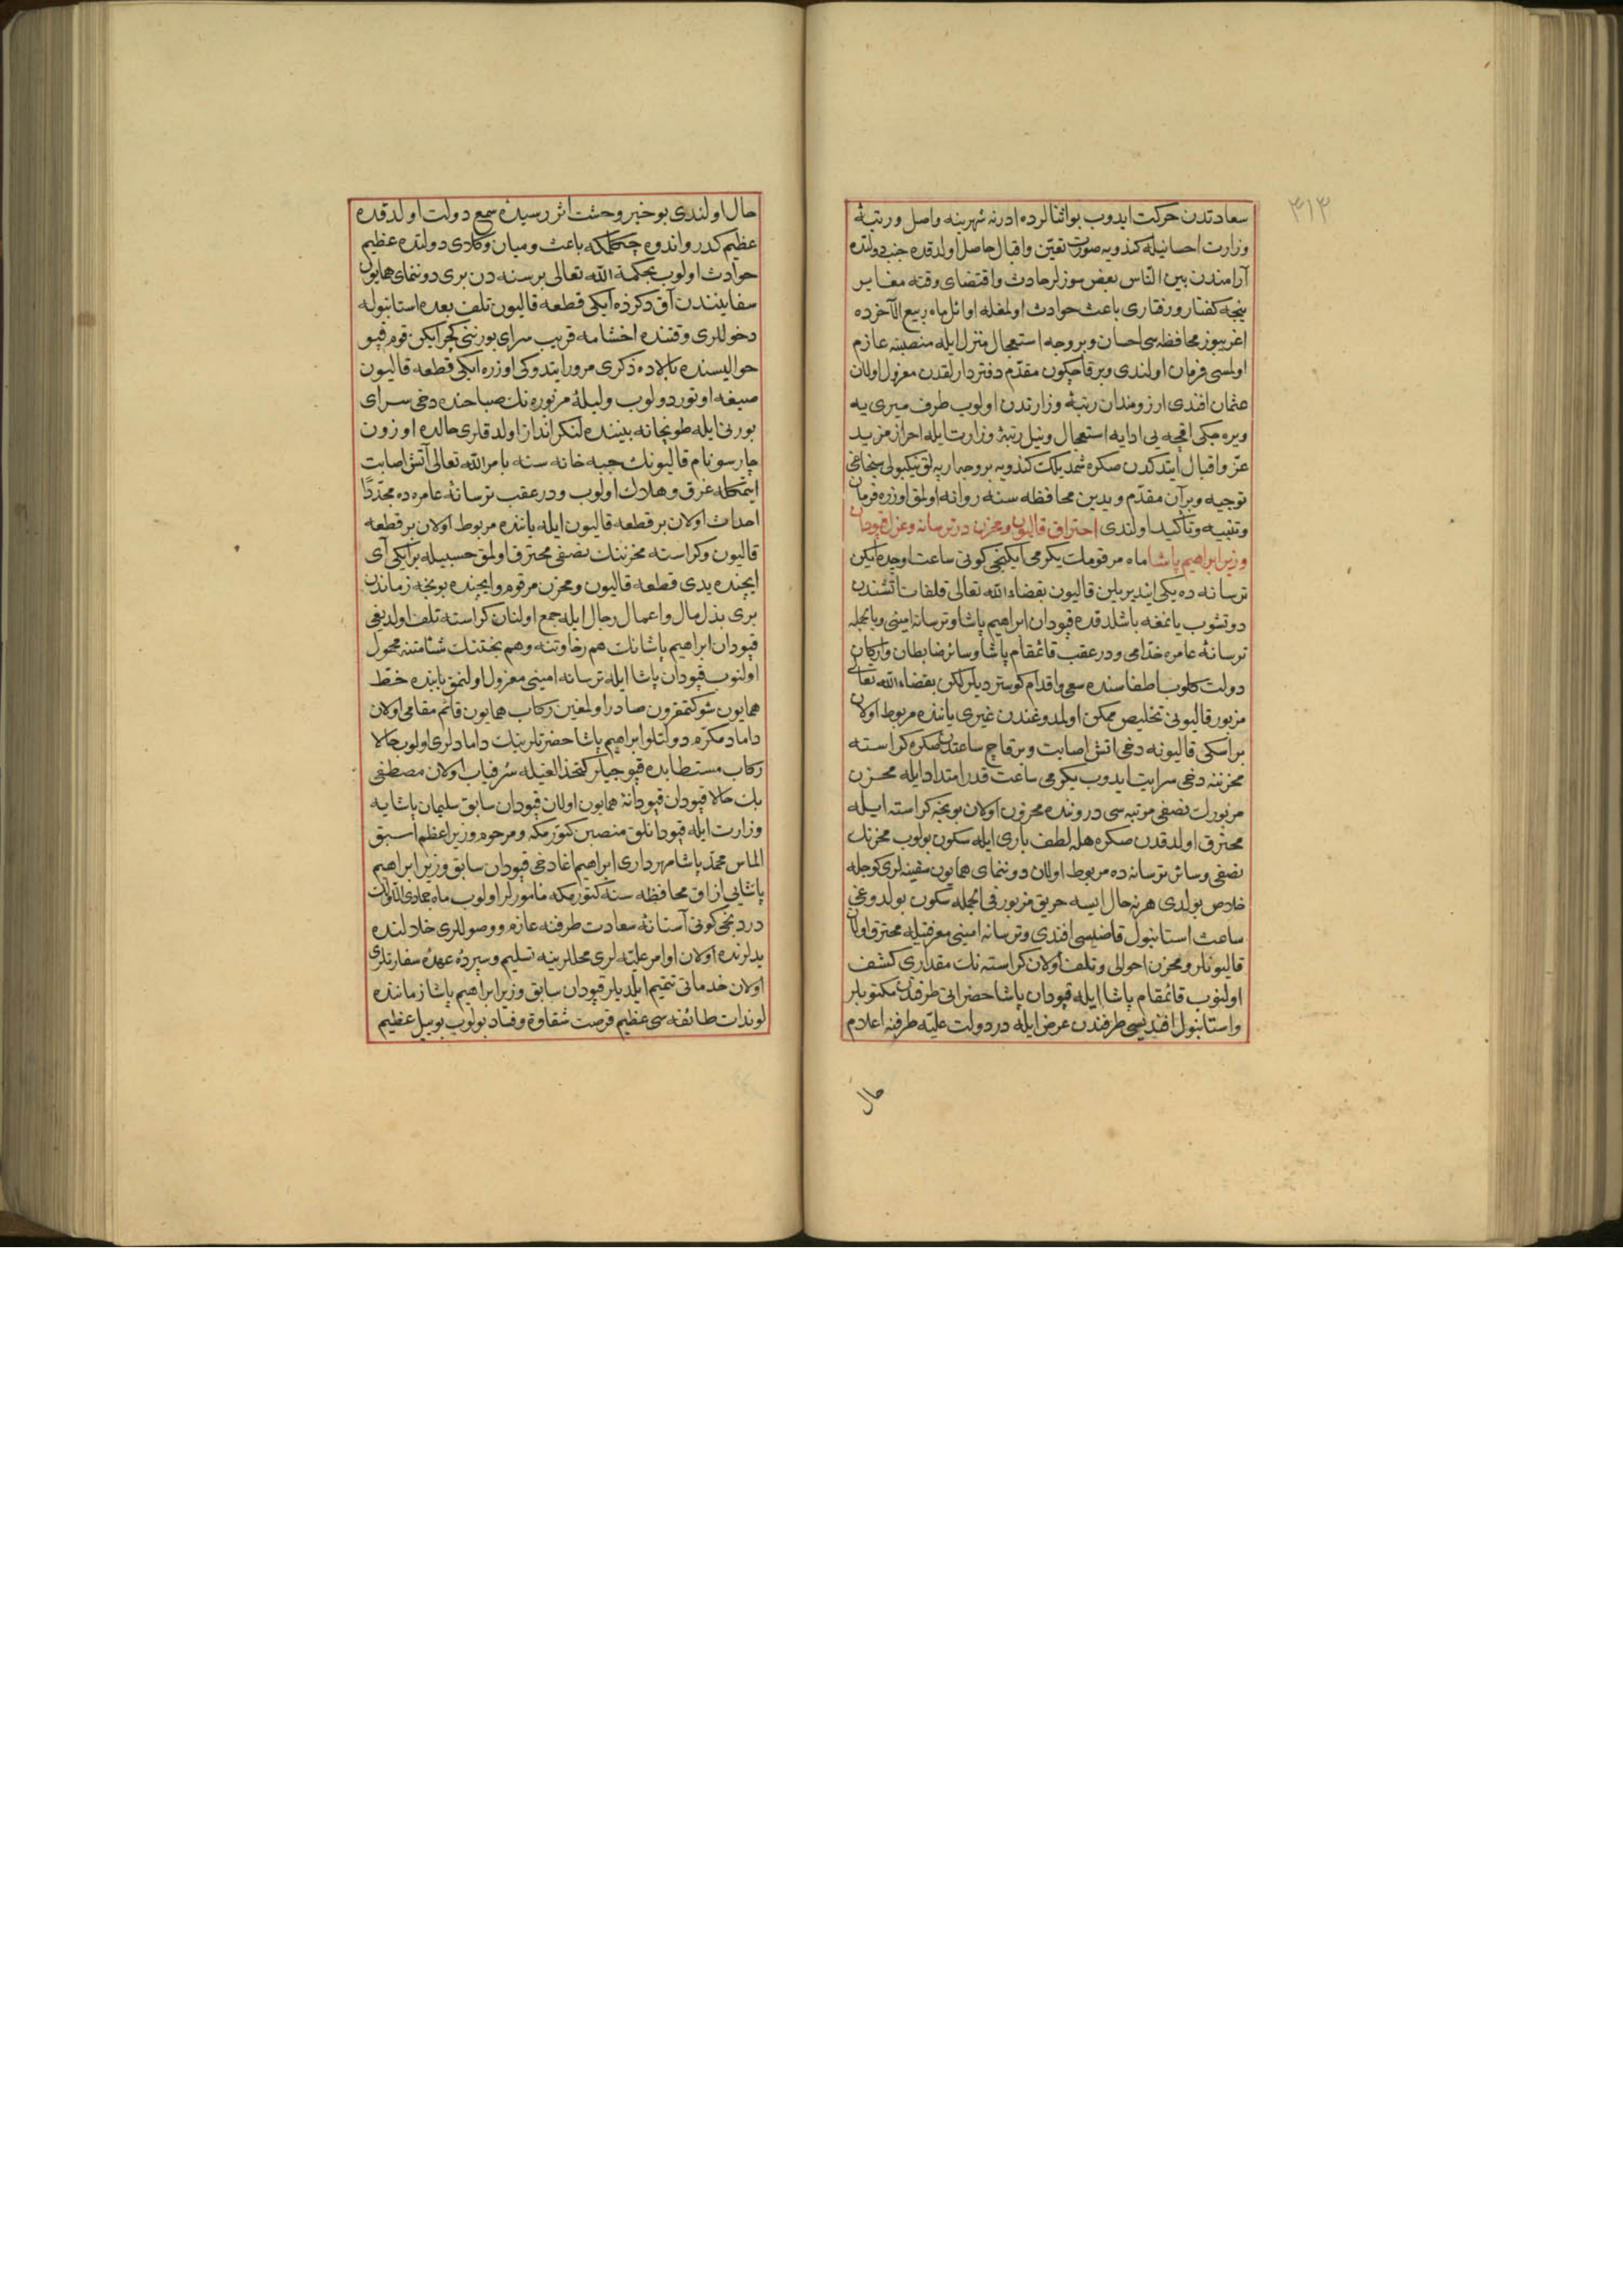 ٣١٣
سعادتدن حركت ايدوب بو اثنالرده ادرنه شهرينه واصل و رتبۀ
وزارت احسانيله كندويه صورت تعيّن و اقبال حاصل اولدقده جنب دولتده
آرامندن بين الناس بعض سوزلر حادث و اقتضاى وقته مغاير
نيجه كفتار و رفتارى باعث حوادث اولمغله اوائل ماه ربيع الآخرده
اغريبوز محافظه سى احسان و بر وجه استعجال منزل ايله منصبنه عازم
اولمسى فرمان اولندى و بر قاچ كون مقدّم دفتردارلقدن معزول اولان
عثمان افندى ارزومندان رتبۀ وزارتدن اولوب طرف ميرى يه
ويره جكى اقچه يى ادايه استعجال و نيل رتبۀ وزارت ايله احراز مزيد
عزّ و اقبال ايتدكدن صكره شمديلك كندويه بر وجه ارپه لق نيكبولى سنجاغى
توجيه و بر آن مقدّم ويدين محافظه سنه روانه اولمق اوزره فرمان
و تنبيه و تأكيد اولندى احتراق قاليون و مخزن در ترسانه و عزل قپودان
وزير ابراهيم پاشا ماه مرقومك يكرمى ايكنجى كونى ساعت اوچده ايكن
ترسانه ده يكى اينديريلن قاليون بقضاء الله تعالى قلفات آتشندن
دوتشوب يانمغه باشلدقده قپودان ابراهيم پاشا و ترسانه امينى و بالجمله
ترسانۀ عامره خدّامى و در عقب قائمقام پاشا و سائر ضابطان و اركان
دولت كلوب اطفاسنده سعى و اقدام كوسترديلر لكن بقضاء الله تعالى
مزبور قاليونى تخليص ممكن اولمدوغندن غيرى ياننده مربوط اولان
بر اسكى قاليونه دخى اتش اصابت و بر قاچ ساعتدن صكره كراسته
مخزننه دخى سرايت ايدوب يكرمى ساعت قدر امتداد ايله مخزن
مزبورك نصفى مرتبه سى درونده مخزون اولان بو نجه كراسته ايله
محترق اولدقدن صكره هله لطف بارى ايله سكون بولوب مخزنك
نصفى و سائر ترسانه ده مربوط اولان دوننماى همايون سفينه لرى كوجله
خلاص بولدى هر نه حال ايسه حريق مزبور فى الجمله سكون بولدوغى
ساعت استانبول قاضيسى افندى و ترسانه امينى معرفتيله محترق اولان
قاليونلر و مخزن احوالى و تلف اولان كراسته نك مقدارى كشف
اولنوب قائمقام پاشا ايله قپودان پاشا حضراتى طرفندن مكتوبلر
و استانبول افنديسى طرفندن عرض ايله در دولت عليّه طرفنه اعلام
حال
حال اولندى بو خبر وحشت اثر رسيدۀ سمع دولت اولدقده
عظيم كدر و اندوه چكملكه باعث و ميان وكلاى دولتده عظيم
حوادث اولوب بحكمة الله تعالى بر سنه دن برى دوننماى همايون
سفايننдن آق دكزده ايكى قطعه قاليون تلف بعده استانبوله
دخوللرى وقتنده اخشامه قريب سراى بورننى كچر ايكن قوم قپو
حواليسنده بالاده ذكرى مرور ايتدوكى اوزره ايكى قطعه قاليون
صيغه اوتوردولوب و ليلۀ مزبوره نك صباحنده دخى سراى
بورنى ايله طوپخانه بيننده لنكرانداز اولدقلرى حالده اوزون
چارسو نام قاليونك جبه خانه سنه بامر الله تعالى آتش اصابت
ايتمكله غرق و هلاك اولوب و در عقب ترسانۀ عامره ده مجدّدًا
احداث اولان بر قطعه قاليون ايله ياننده مربوط اولان بر قطعه
قاليون و كراسته مخزننك نصفى محترق اولمق حسبيله بر ايكى آى
ايچنده يدى قطعه قاليون و مخزن مرقوم و ايچنده بو نجه زماندن
برى بذل مال و اعمال رجال ايله جمع اولنان كراسته تلف اولديغى
قپودان ابراهيم پاشانك هم رخاوتنه و هم بختنك شئامتنه محمول
اولنوب قپودان پاشا ايله ترسانه امينى معزول اولنمق بابنده خطّ
همايون شوكتمقرون صادر اولمغين ركاب همايون قائم مقامى اولان
داماد مكرّم دولتلو ابراهيم پاشا حضرتلرينك دامادلرى اولوب حالا
ركاب مستطابده قپوجيلر كتخدالغيله شرفياب اولان مصطفى
بك حالا قپودان قپودانۀ همايون اولان قپودان سابق سليمان پاشايه
وزارت ايله قپودانلق منصبن كتورمكه و مرحوم وزير اعظم اسبق
الماس محمّد پاشا مهردارى ابراهيم اغا دخى قپودان سابق وزير ابراهيم
پاشايى ازاق محافظه سنه كتورمكه مأمورلر اولوب ماه جمادى الاولانك
دردنجى كونى آستانۀ سعادت طرفنه عازم و وصوللرى خلالنده
يدلرنده اولان اوامر عليّه لرى محللرينه تسليم و سپردۀ عهدۀ سفارتلرى
اولان خدماتى تتميم ايلديلر قپودان سابق وزير ابراهيم پاشا زماننده
لوندات طائفه سى عظيم فرصت شقاوة و فساد بولوب بو بيل عظيم